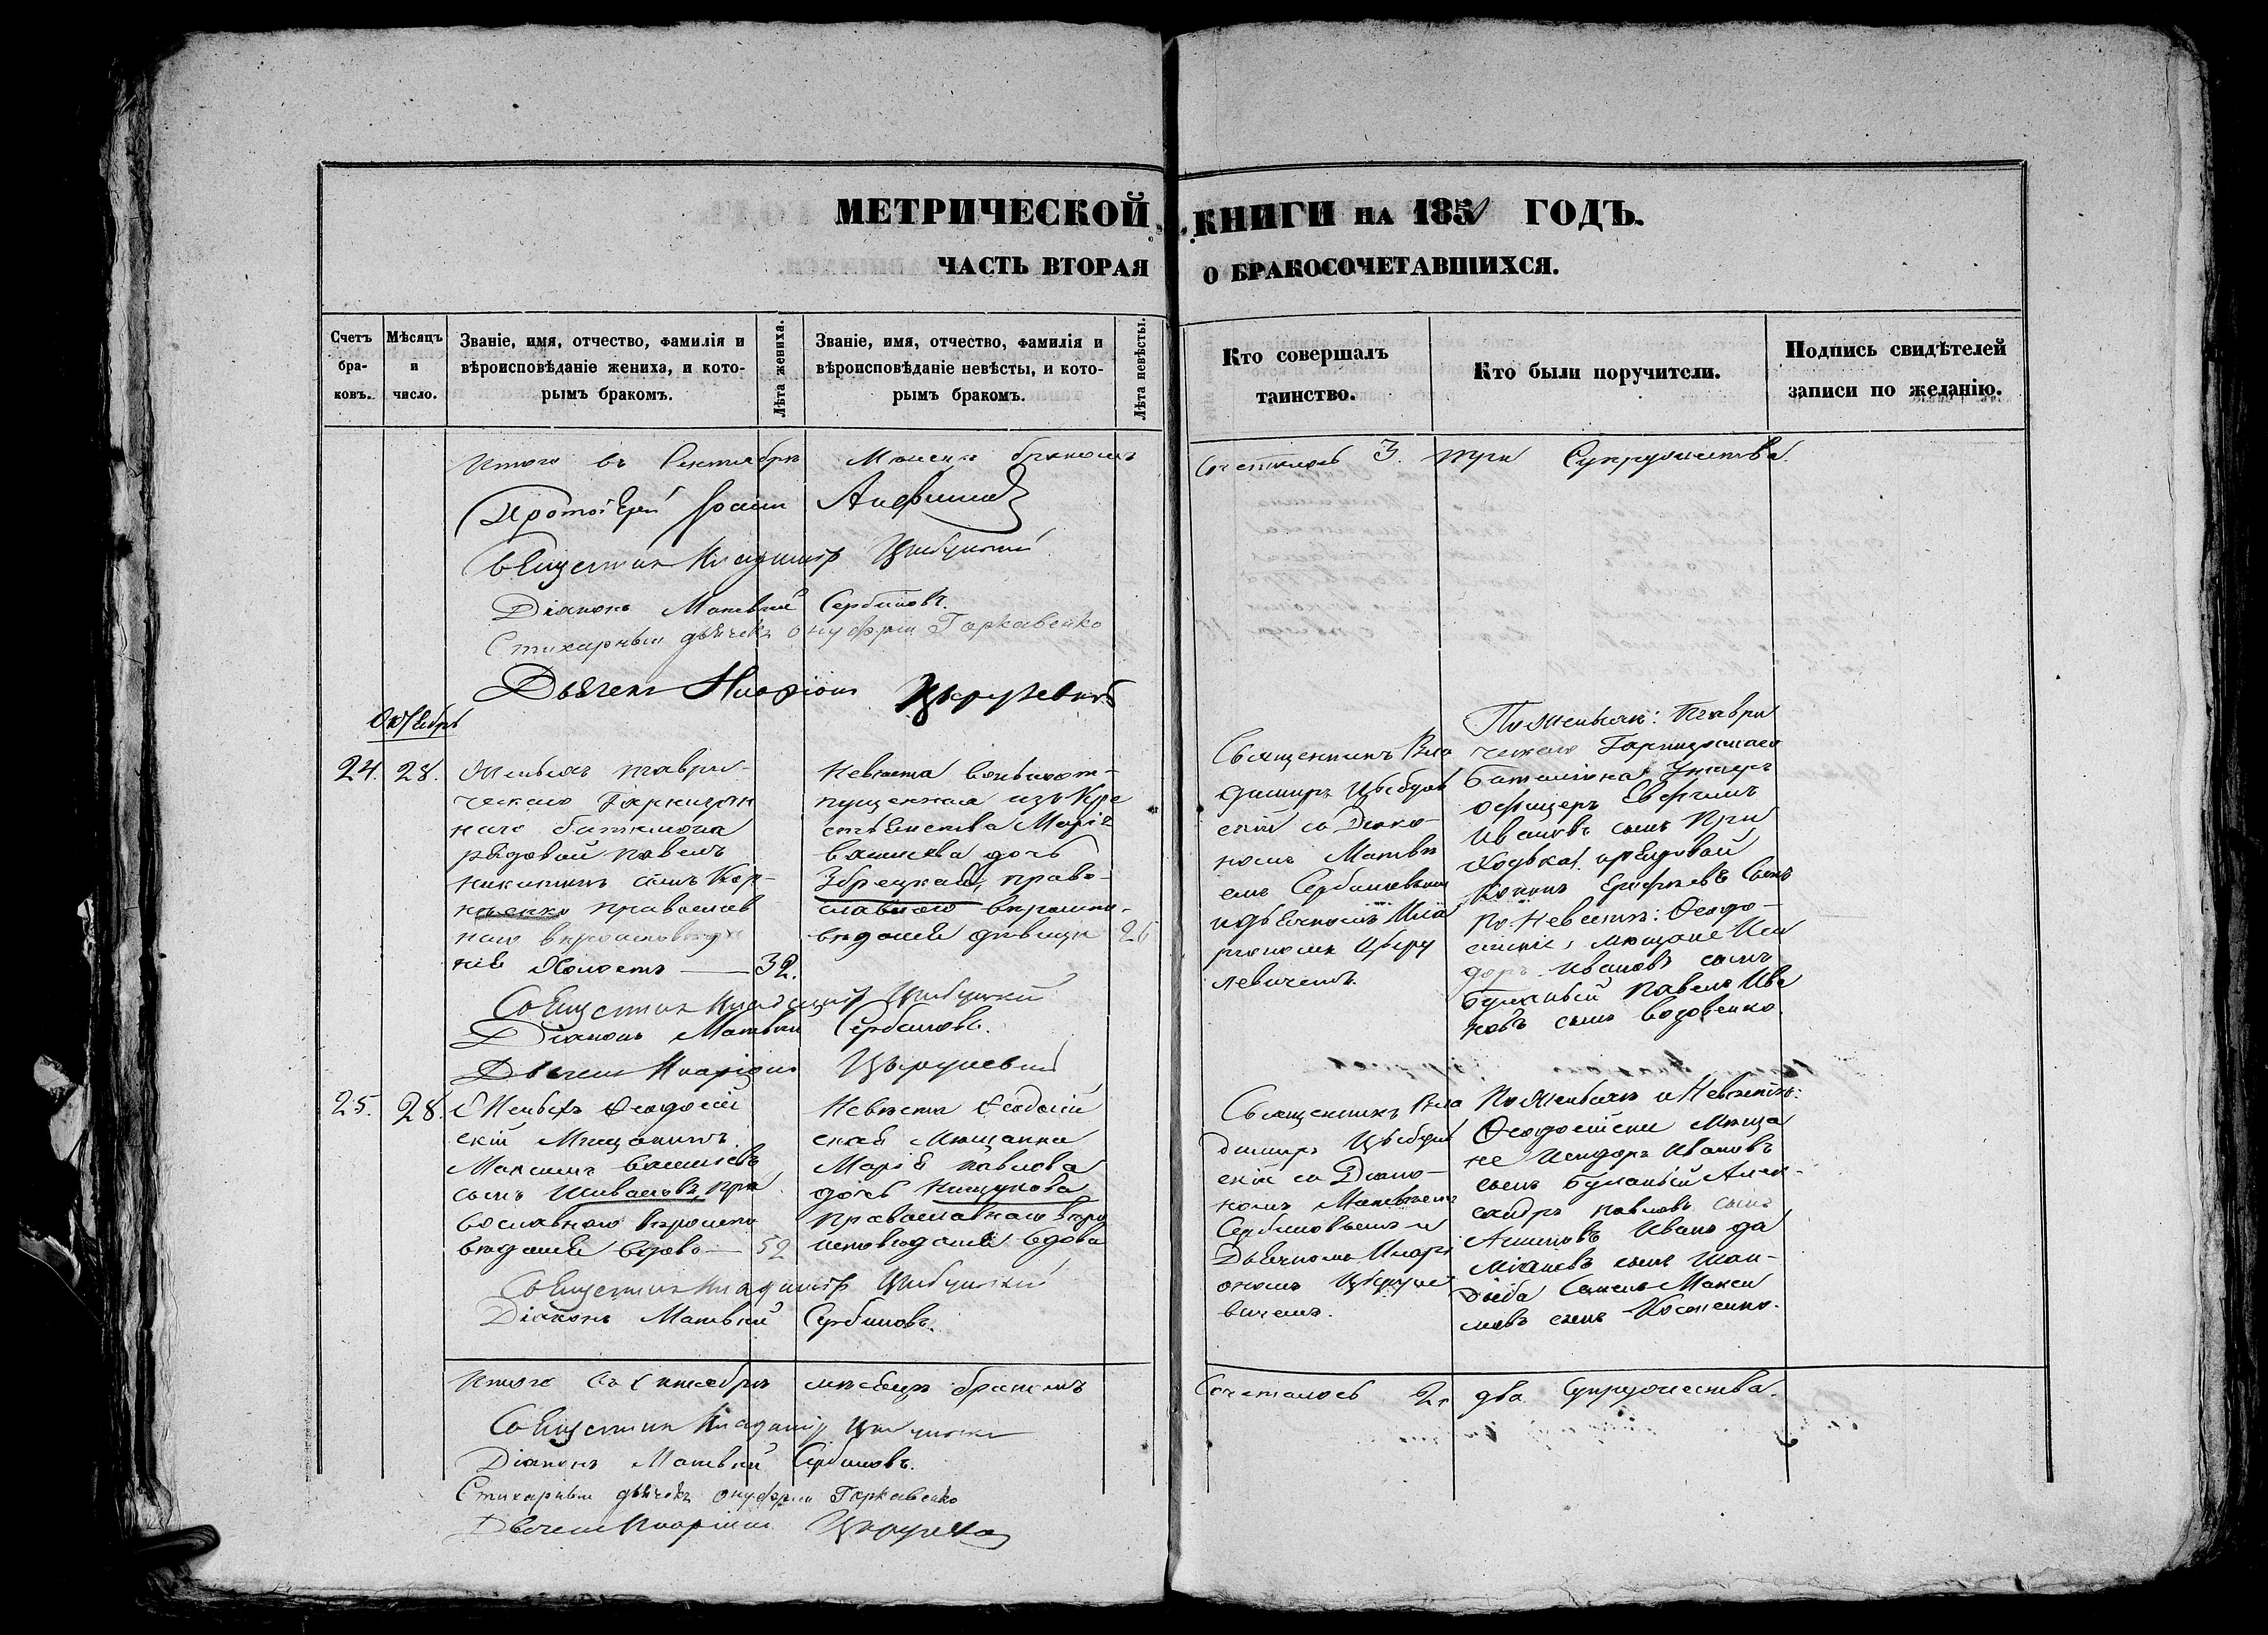 МЕТРИЧЕСКОЙ КНИГИ НА 1851 ГОДЪ.
ЧАСТЬ ВТОРАЯ О БРАКОСОЧЕТАВШИХСЯ.
Счетъ браковъ.
Мѣсяцъ и число.
Званіе, имя, отчество, фамилія и
вѣроисповѣданіе жениха, и кото-
рымъ бракомъ.
Лѣта жениха.
Званіе, имя, отчество, фамилія и
вѣроисповѣданіе невѣсты, и кото-
рымъ бракомъ.
Лѣта невѣсты.
Кто совершалъ
таинство.
Кто были поручители.
Подпись свидѣтелей
записи по желанію.
Итого въ Сентябрѣ Мѣсецѣ бракомъ Сочеталось 3. три Супружества.
Протоіерей Іоаннъ
Священникъ Владиміръ Цыбульскій
Діаконъ Матвѣй Сербиновъ.
Стихарный дьячекъ Онуфрій Горкавенко
Дьячекъ Иларіонъ
Октябрь
24. 28.
Женихъ таври-
ческаго Гарнизон
наго баталіона
рядовой Павелъ
Никитинъ сынъ Кор-
православ
наго вѣроисповѣда
нія Холостъ — 32.
Невѣста вольноот-
пущенная изъ Кре
стьянства Марія
дочь
право-
славнаго вѣроиспо-
вѣданія дѣвица 26
Священникъ Вла
диміръ Цыбуль
скій съ Діако-
номъ Матвѣ
емъ Сербиновымъ
и дьячкомъ Ила
ріономъ
левичемъ.
По Женихѣ: Таври
ческаго Гарнизоннаго
Баталіона Унтеръ
офицеръ Евфимъ
Ивановъ сынъ При
ходька, и рядовой
сынъ
по Невѣстѣ: Ѳеодо-
сійскіе мѣщане Иси
доръ Ивановъ сынъ
Буланый Павелъ Ива
новъ сынъ Водовенко.
Священникъ Владиміръ Цыбульскій
Діаконъ Матвѣй Сербиновъ.
Дьячекъ Иларіонъ
25. 28.
Женихъ Ѳеодосій
скій Мѣщанинъ
Максимъ Васильевъ
сынъ Шиваловъ, пра
вославнаго вѣроиспо
вѣданія вдовъ — 52
Невѣста Ѳеодосій
ская Мѣщанка
Марія Павлова
дочь Кищукова
Православнаго вѣро
исповѣданія вдова
Священникъ Вла
диміръ Цыбуль
скій съ Діако-
номъ Матвѣемъ
Сербиновымъ и
Дьячкомъ Иларі
ономъ
вичемъ.
По Женихѣ и Невѣстѣ:
Ѳеодосійскіе мѣща
не Исидоръ Ивановъ
сынъ Буланый Алек-
сандръ Павловъ сынъ
Иванъ Да
міановъ сынъ Шан-
дыба Макси
мовъ сынъ Косненко.
Священникъ Владиміръ Цыбульскій
Діаконъ Матвѣй Сербиновъ.
Итого въ Октябрѣ мѣсяцѣ бракомъ Сочеталось 2. два Супружества.
Священникъ Владиміръ Цыбульскій
Діаконъ Матвѣй Сербиновъ.
Стихарный дьячекъ Онуфрій Горкавенко
Дьячекъ Иларіонъ